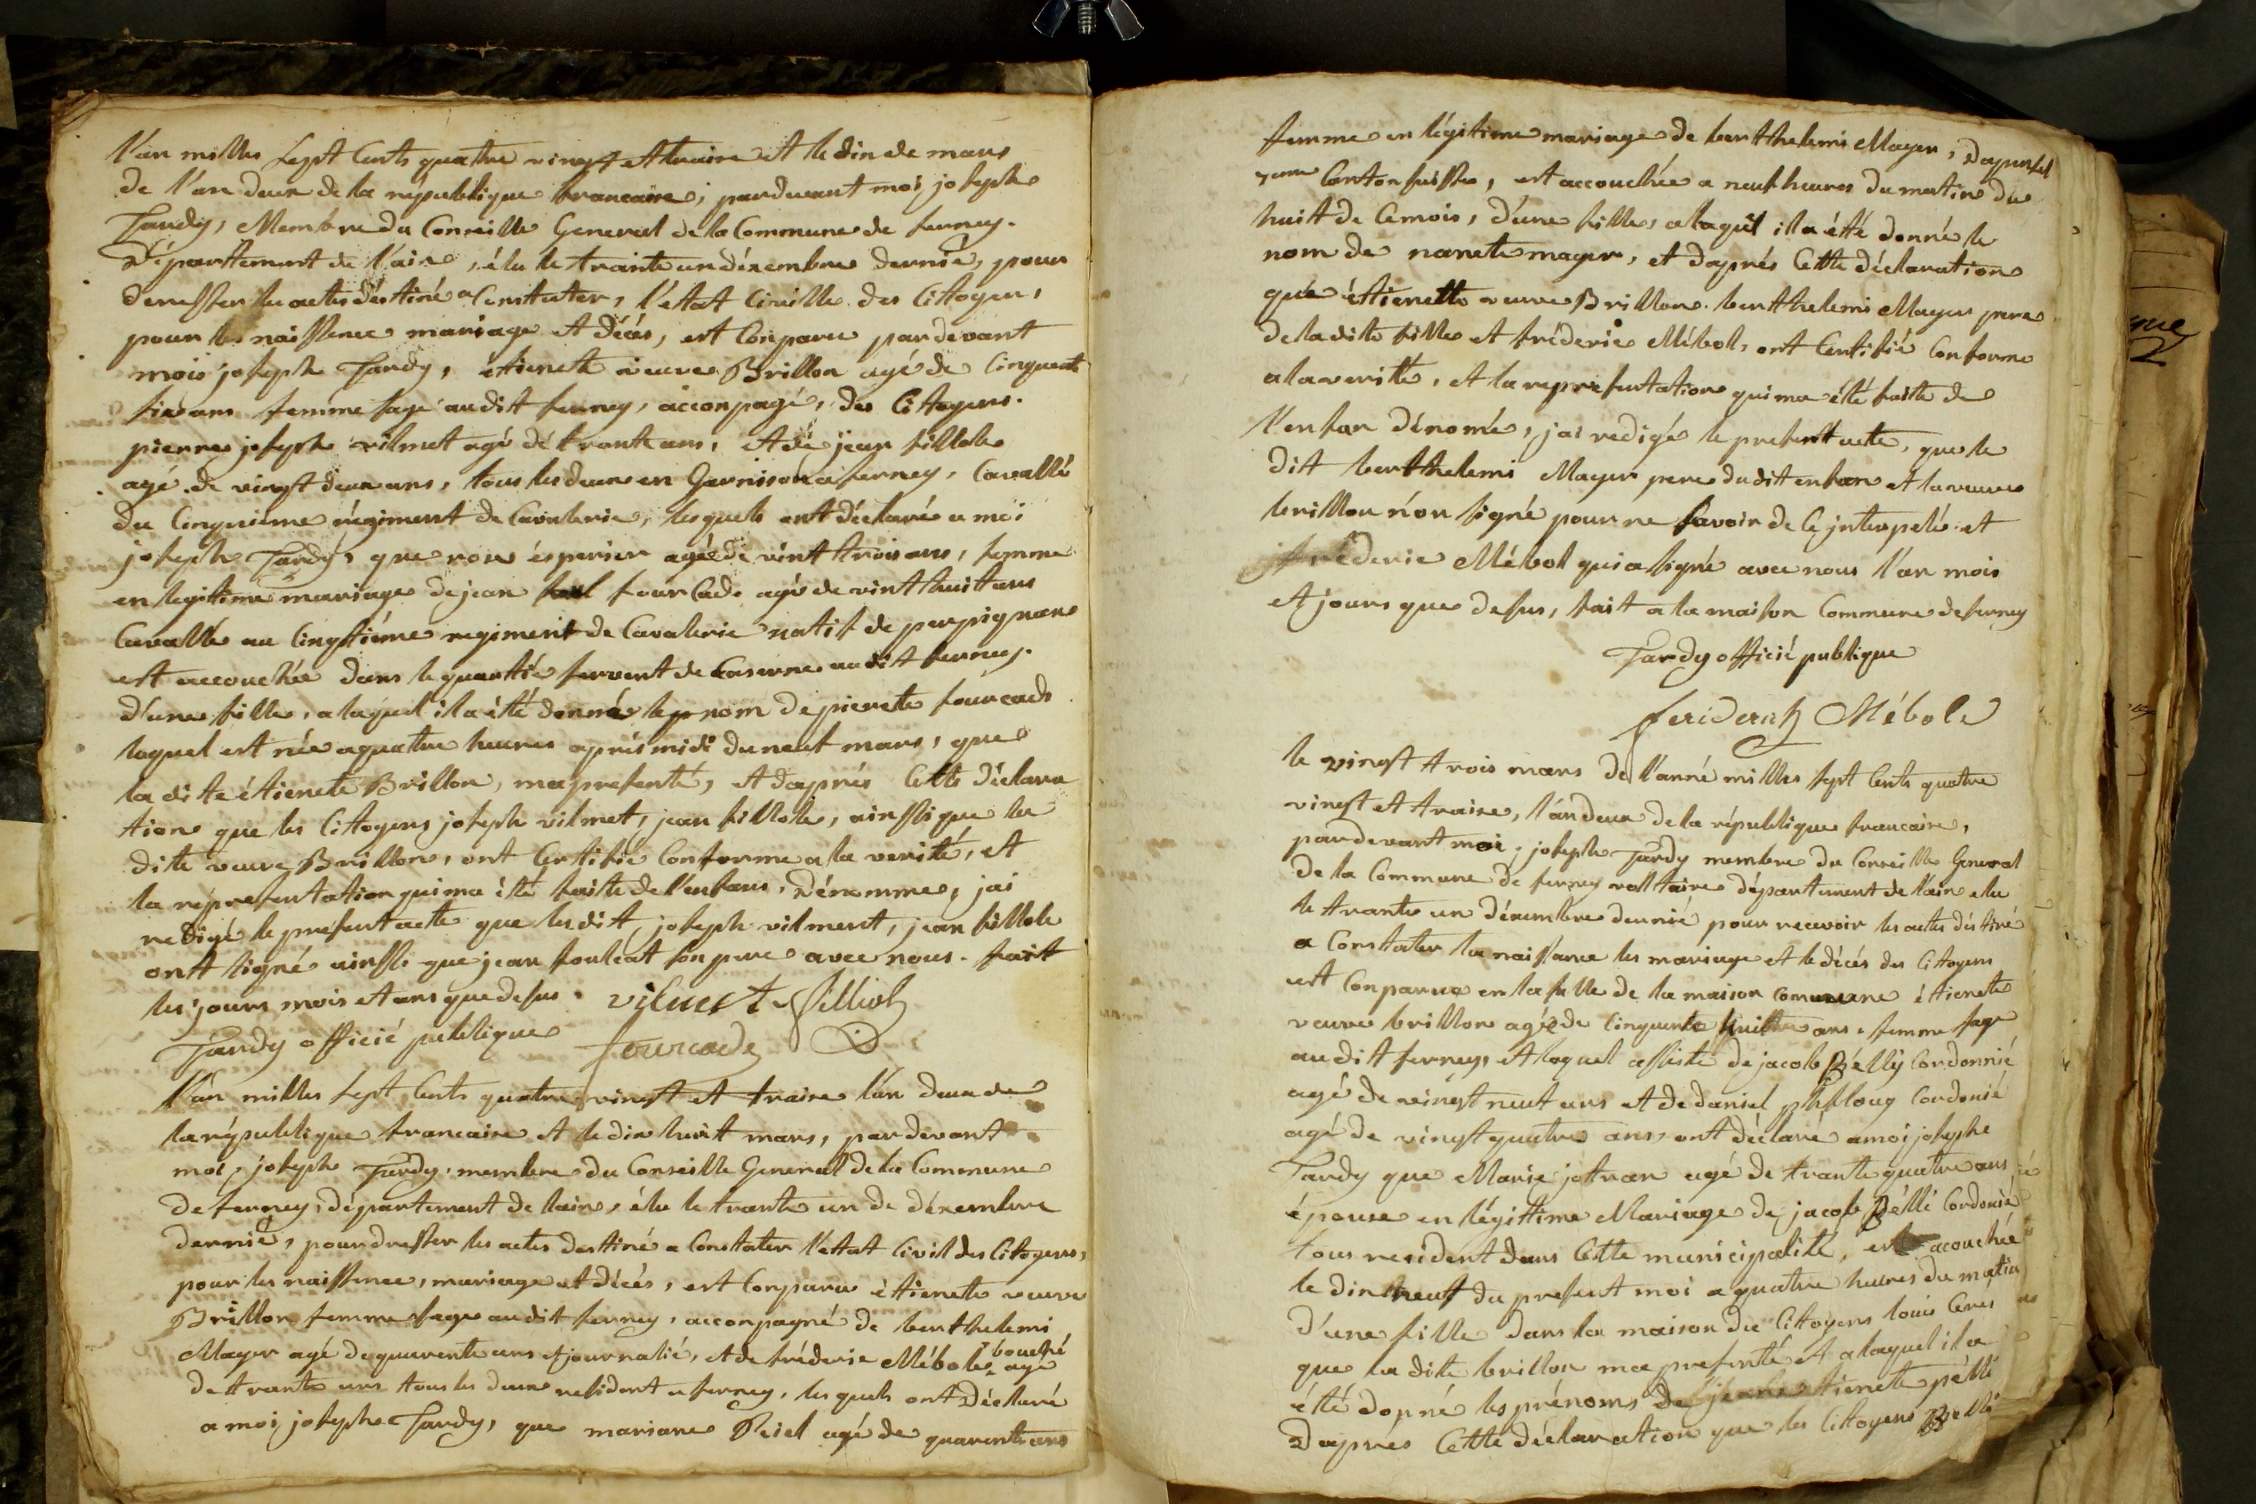 l'an milles sept Cents quatre vingt et traise et le dix de mars
de l'an deux de la république francaise, pardevant moi joseph
Tardy, Membre du Conseille General de la Commune de ferney.
Département de l'ain, élu le trante un désembre dernié, pour
deresser les actes déstiné a Constater, l'état Civille des Citoyen,
pour les naissence mariage et décés, est Conparu pardevant
moi joseph Tardy, étienete veuve Brillon agé de Cinquente
six ans femme sage audit ferney, acconpagé, des Citoyens.
pierre joseph vilmet agé de trante ans, et de jean filliole
agé de vingt deux ans, tous les deux en Garnison a ferney, Cavallié
du Cinquiéme régiment de Cavalerie, lesquels ont déclaré a moi
joseph Tardy, que rose ésperier agée de vint trois ans, femme
en legitime mariage de jean fourcade agé de vint huit ans
Cavallié au Cinqtiéme regiment de Cavalerie natif de perpignan
est accouchée dans le quartié servent de Caserne audit ferney.
d'une fille, a laquel il a été donné le prnom de pierete fourcade
laquel est née a quatre heures aprés midi du neuf mars, que
la dite étienete Brillon, ma presenté, et d'aprés Cette déclara
tion que les Citoyens joseph vilmet, jean filliole, ainssi que la
dite veuve Brillon, ont Certifié Conforme a la verité, et
la réprésentation qui ma été faite de l'enfans, dénommé, jai
redigé le présent acte que les dit, joseph vilment, jean filliole
ont signé ainssi que jean foulcat son pere avec nous. fait
les jours mois et ans que desus. vilmet filliol
Tardy officié publique fourcade
l'an milles sept Cents quatre vingt et traise l'an deux de
la république francaise et le dix huit mars, par devant
moi, joseph Tardy, membre du Conseille General de la Commune
de ferney, département de lain, élu le trante un de désembre
dernié, pour dresser les actes destiné a Constater l'état Civil des Citoyens,
pour les naissence, mariage et décés, est Conparu étienete veuve
Brillon femme sage audit ferney, acconpagné de berthelemi
Mayer agé de quarente ans journalié, et de fréderic Mébole bouché agé
de trante ans tous les deux resident a ferney, les quels ont déclaré
a moi joseph Tardy, que mariane Reiel agé de quarente ans
femme en légitime mariage de berthelemi Mayer,
Canton suisse, est accouchée a neuf heures du matin du
huit de Cemois, d'une fille, a laquel il a été donné le
nom de nanete mayer, et d'aprés Cette déclaration
que étienette veuve Brillon. berthelemi Mayer pere
de la dite fille et fréderic Mébole, ont Certifié Conforme
a la verité, et la représentation qui ma été faite de
l'enfan dénomé, jai redigé le present acte, que le
dit berthelemi Mayer pere dudit enfan et la veuve
brillon n'on signé pour ne savoir de Ce jnterpelé et
fréderic Mébol qui a signé avec nous l'an mois
et jours que desus, fait a la maison Commune de ferney
Tardy officié publique
feriderich Mébole
le vingt trois mars de l'anné milles sept Cents quatre
vingt et traise, l'an deux de la république francaise,
pardevant moi, joseph Tardy membre du Conseille General
de la Commune de ferney volltaire département de l'ain elu
le trante un désembre dernié pour recevoir les actes déstiné
a Constater la naissance les mariage et le décés des Citoyens
est Conparue en la salle de la maison commune étienete
veuve brillon agée de Cinquente huitte ans femme sage
audit ferney, et laquel assisté de jacob Pélly Cordonnié
agé de vingt neuf ans et de daniel Cordonié
agé de vingt quatre ans, ont déclaré a moi josephe
Tardy que Marie jotran agé de trante quatre ans
épouse en légittime Mariage de jacob Pélli Cordonié
tous resident dans Cette municipalité, est acouchée
le dix neuf du present moi a quatre heures du matin
d'une fille dans la maison du Citoyens louis Ceres
que la dite brillon ma presenté et a laquel il a
été donné les prénoms de étienete pélli
Daprés Cette déclaration que les Citoyens Pelli